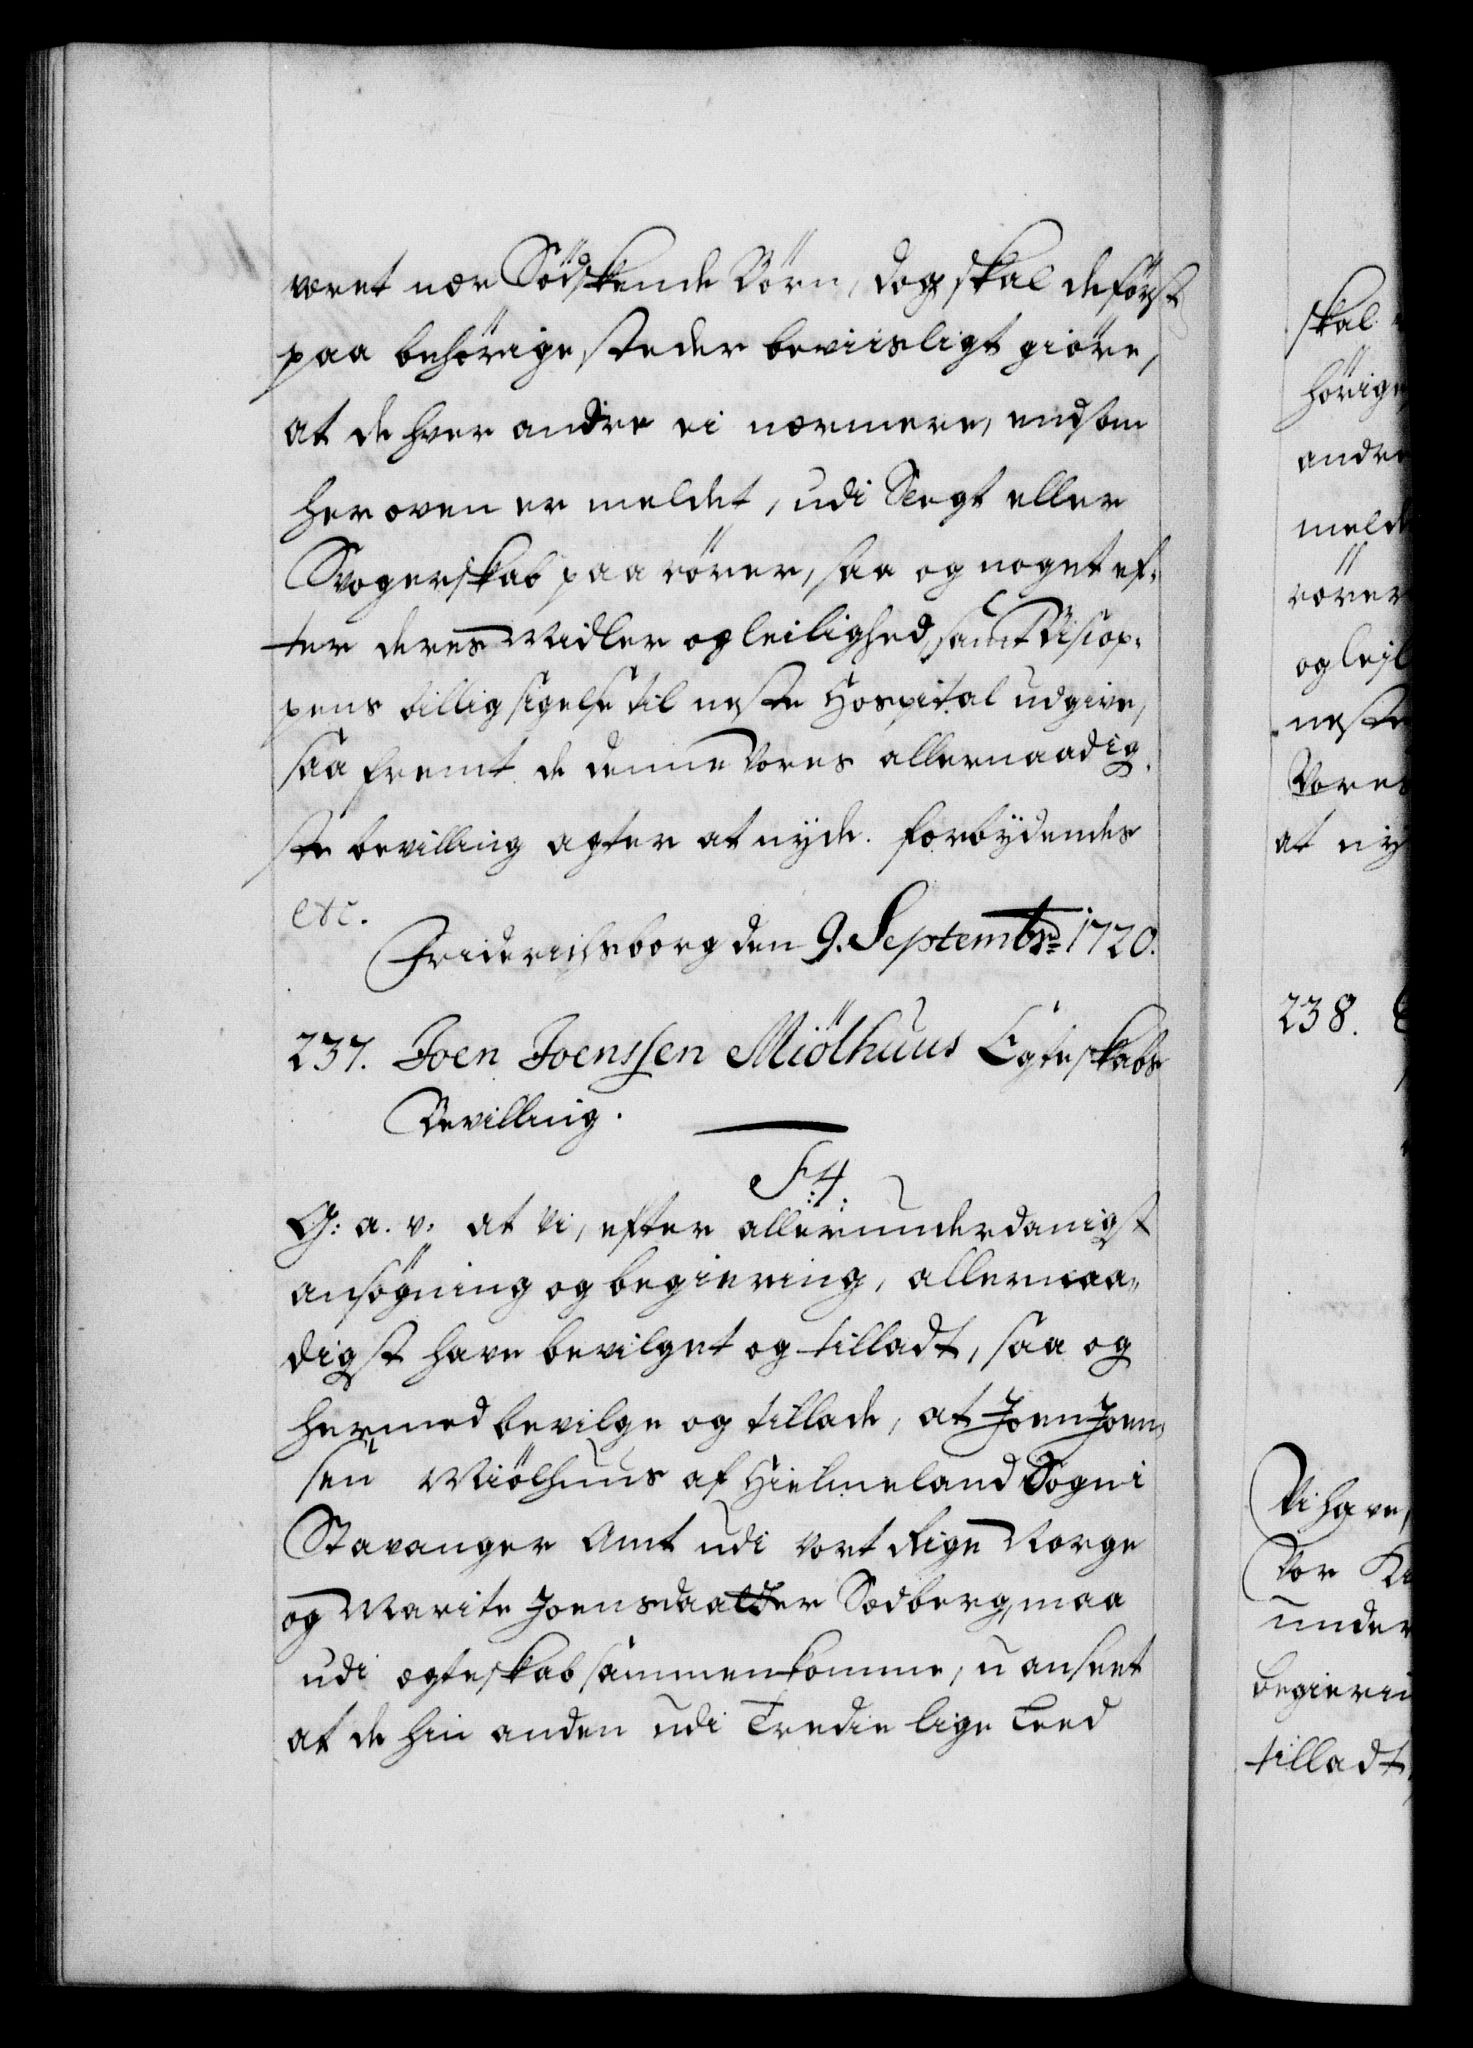 været nær Södskende Börn, dog skal de först
paa behörige steder beviisligt giöre,
at de hver andre ei nærmere, end som
her oven er meldet, udi Slegt eller
Svogerskab paa rörer, saa og noget ef-
ter deres Midler og leilighed, samt Biscop-
pens billig sigelse til neste Hospital udgive,
saa fremt de denne Vores allernaadig-
ste bevilling agter at nyde. forbydendes
etc.
Friderichsborg den 9. Septembr. 1720.
237. Joen Joenssen Miölhuus Egteskabs
Bevilling.
F:4.
G: a. v: at Vi, efter allerunderdanigst
ansögning og begiering, allernaa-
digst have bevilget og tilladt, saa og
hermed bevilge og tillade, at Joen Joen-
sen Miölhuus af Hielmeland Sogn i
Stavanger Amt udi Vort Rige Norge
og Marite Joensdaatter Sodberg, maa
udi ægteskab sammenkomme, uanseet
at de hin anden udi Tredie lige Leed
skal
hörige
andre
meld
rörer
og lejl
neste
Vores
at ny
238.
Vi have,
Vor
under
begierin
tilladt